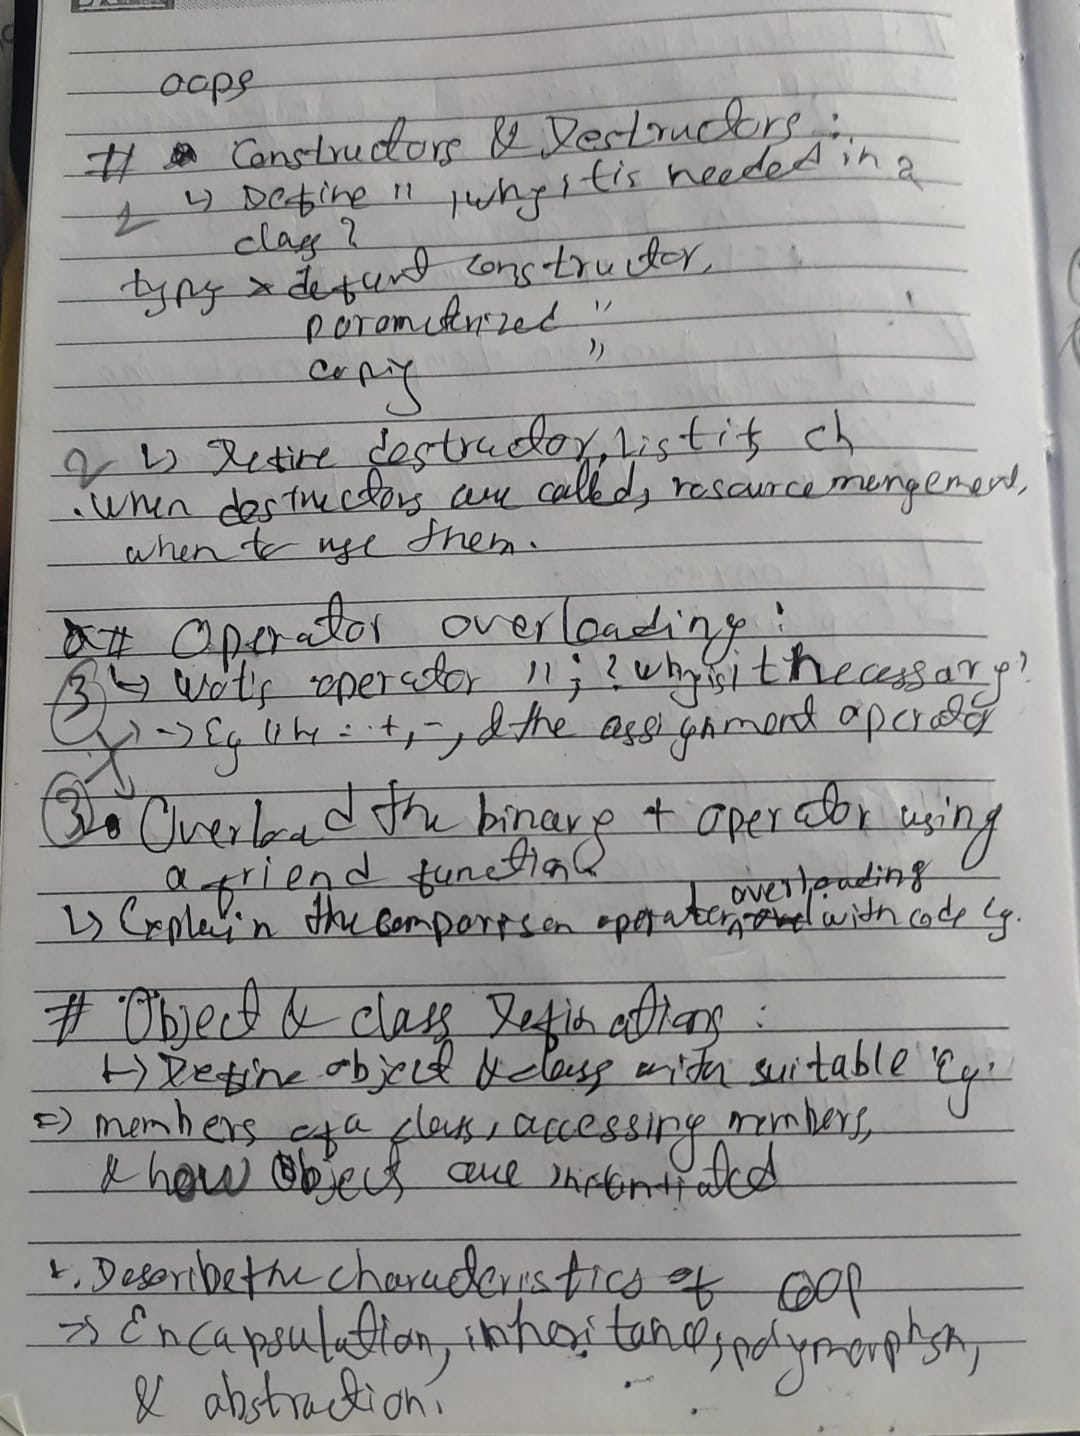 oops
# Constructors & Destructors :
↳ Define " , why it is needed in a
2
class ?
types * defunt constructor,
parameterized "
copy "
2 ↳ Define destructor, list its ch
. when destructors are called, resource mengement,
when to use them.
# Operator overloading :
3 ↳ Wot's operator " ; ? why is it necessary ?
→ Eg like : +, -, & the assignment operator
3 • Overload the binary + operator using
a friend function
overloading
↳ Explain the comparison operator with code eg.
# Object & class Definations :
↳ Define object & class with suitable Eg.
⇒ members of a class, accessing members,
& how Objects are instantiated
Describe the characteristics of OOP
→ Encapsulation, inheritance, polymorphsm,
& abstraction.